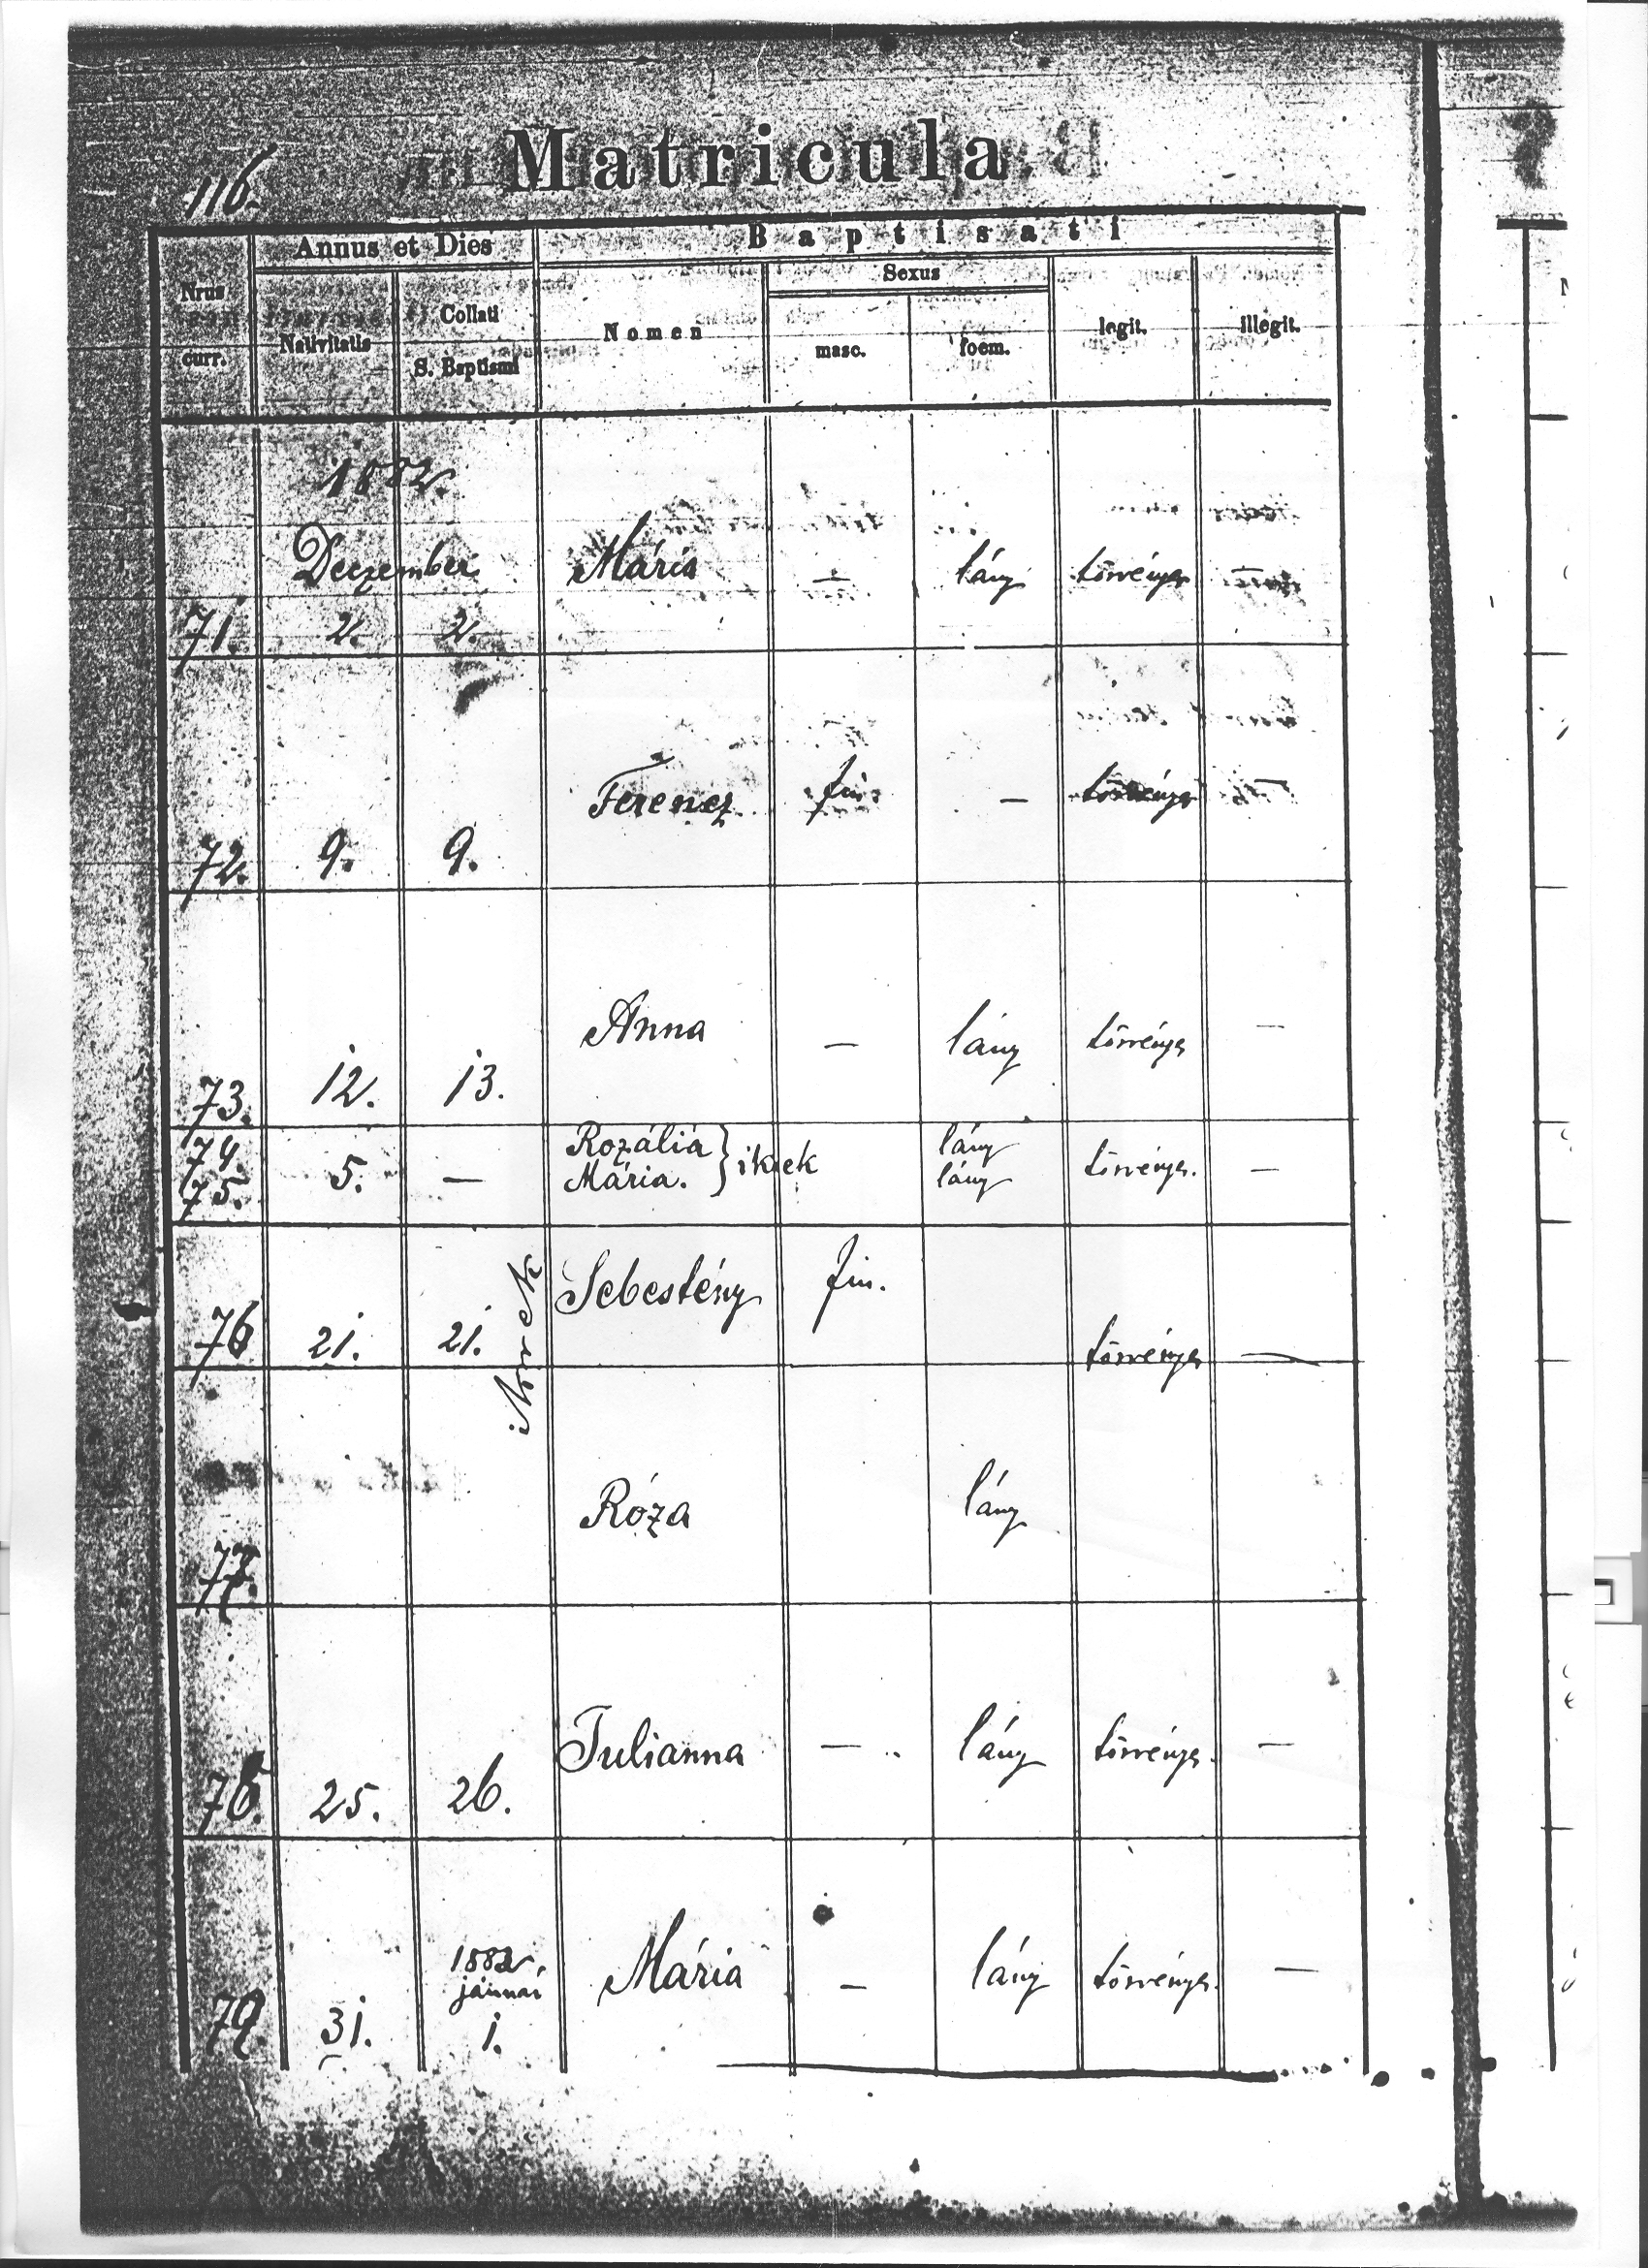 116.
Matricula
Annus et Dies
Baptisati
Nrus curr.
Nativitatis
Collati S. Baptismi
Nomen
Sexus
masc.
foem.
legit.
illegit.
1882.
Deczember
71. 2. 2. Mária — lány törvényes —
72. 9. 9. Ferencz fiu. — törvényes —
73. 12. 13. Anna — lány törvényes —
74. 5. — Rozália } ikrek lány törvényes. —
75. Mária. lány
76 21. 21. Sebestény fiu. törvényes —
ikrek
77. Róza lány
78. 25. 26. Julianna — lány törvényes. —
1882.
január
79 31. 1. Mária — lány törvényes. —